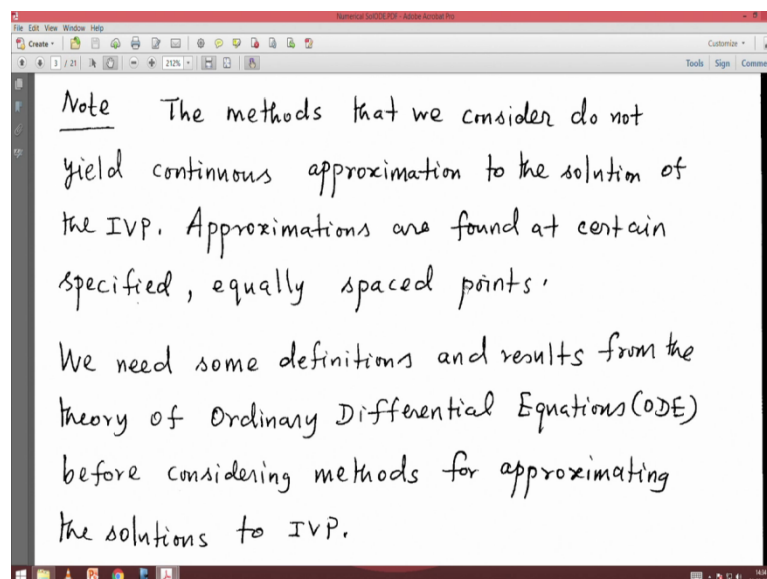 Numerical SolODE.PDF - Adobe Acrobat Pro
File Edit View Window Help
Create Customize
3 / 21 212% Tools Sign Comme
Note The methods that we consider do not
yield continuous approximation to the solution of
the IVP. Approximations are found at certain
specified, equally spaced points.
We need some definitions and results from the
theory of Ordinary Differential Equations (ODE)
before considering methods for approximating
the solutions to IVP.